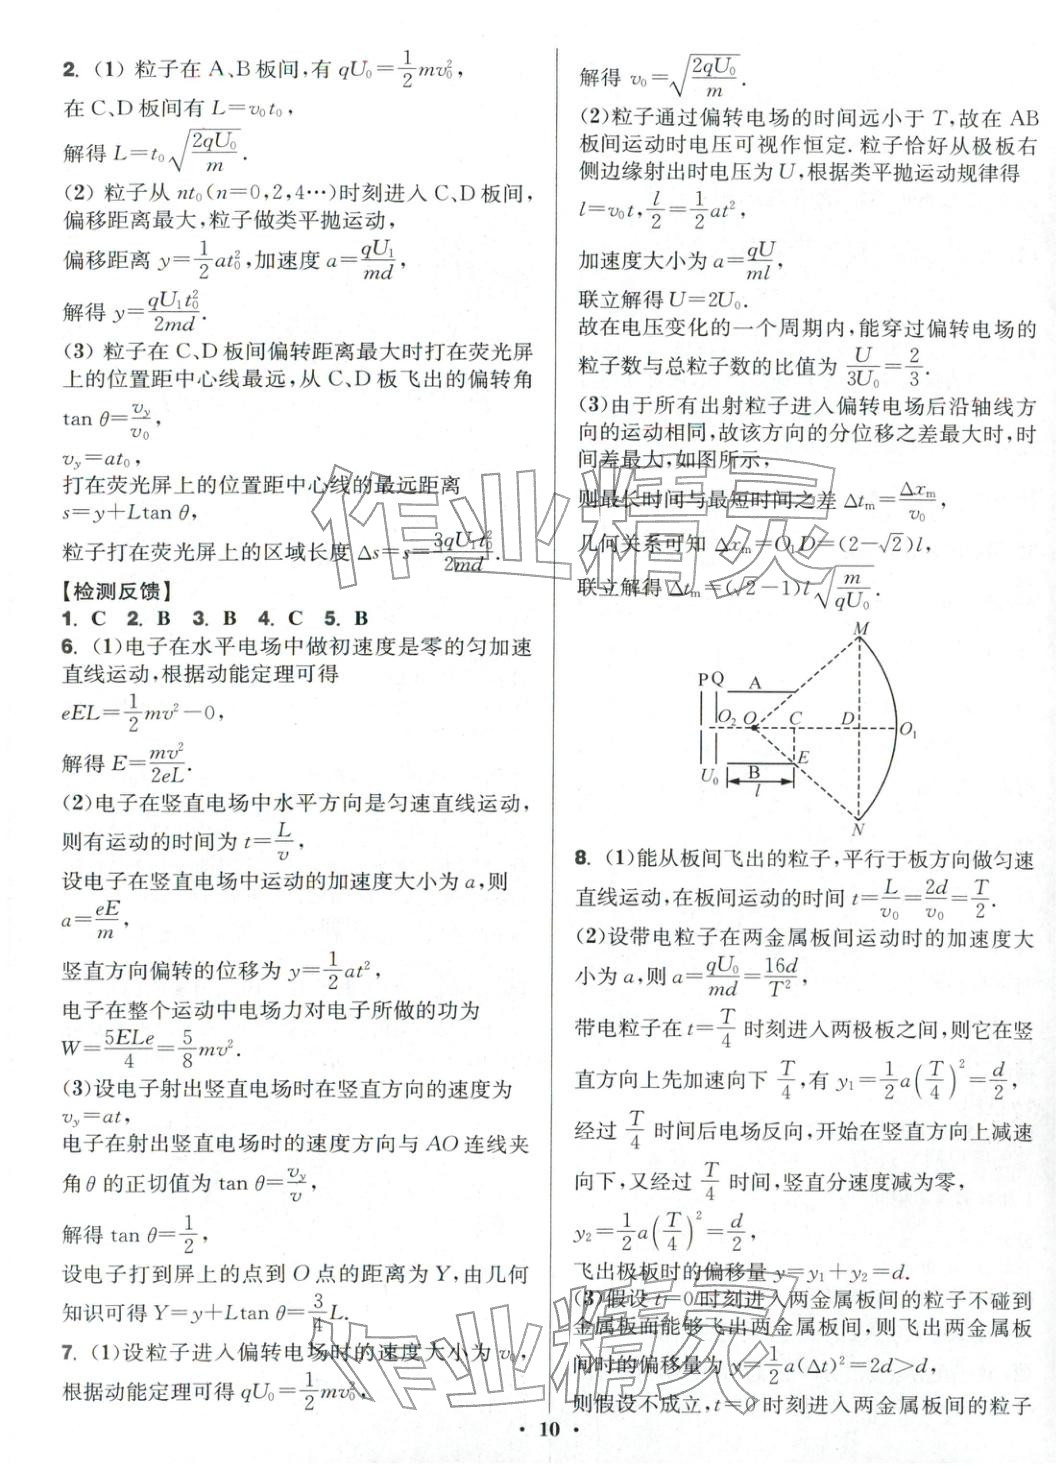 2. (1) 粒子在 A、B 板间,有 qU₀=\frac{1}{2}mv₀²,
在 C、D 板间有 L=v₀t₀,
解得 L=t₀\sqrt{\frac{2qU₀}{m}}.
(2) 粒子从 nt₀(n=0,2,4…)时刻进入 C、D 板间,
偏移距离最大,粒子做类平抛运动,
偏移距离 y=\frac{1}{2}at₀²,加速度 a=\frac{qU₁}{md},
解得 y=\frac{qU₁t₀²}{2md}.
(3) 粒子在 C、D 板间偏转距离最大时打在荧光屏
上的位置距中心线最远,从 C、D 板飞出的偏转角
tan θ=\frac{v_y}{v₀},
v_y=at₀,
打在荧光屏上的位置距中心线的最远距离
s=y+Ltan θ,
粒子打在荧光屏上的区域长度 Δs=s=\frac{3qU₁t₀²}{2md}.
【检测反馈】
1. C 2. B 3. B 4. C 5. B
6. (1)电子在水平电场中做初速度是零的匀加速
直线运动,根据动能定理可得
eEL=\frac{1}{2}mv²-0,
解得 E=\frac{mv²}{2eL}.
(2)电子在竖直电场中水平方向是匀速直线运动,
则有运动的时间为 t=\frac{L}{v},
设电子在竖直电场中运动的加速度大小为 a,则
a=\frac{eE}{m},
竖直方向偏转的位移为 y=\frac{1}{2}at²,
电子在整个运动中电场力对电子所做的功为
W=\frac{5ELe}{4}=\frac{5}{8}mv².
(3)设电子射出竖直电场时在竖直方向的速度为
v_y=at,
电子在射出竖直电场时的速度方向与 AO 连线夹
角 θ 的正切值为 tan θ=\frac{v_y}{v},
解得 tan θ=\frac{1}{2},
设电子打到屏上的点到 O 点的距离为 Y,由几何
知识可得 Y=y+Ltan θ=\frac{3}{4}L.
7. (1)设粒子进入偏转电场时的速度大小为 v₀,
根据动能定理可得 qU₀=\frac{1}{2}mv₀²,
解得 v₀=\sqrt{\frac{2qU₀}{m}}.
(2)粒子通过偏转电场的时间远小于 T,故在 AB
板间运动时电压可视作恒定.粒子恰好从极板右
侧边缘射出时电压为 U,根据类平抛运动规律得
l=v₀t,\frac{l}{2}=\frac{1}{2}at²,
加速度大小为 a=\frac{qU}{ml},
联立解得 U=2U₀.
故在电压变化的一个周期内,能穿过偏转电场的
粒子数与总粒子数的比值为 \frac{U}{3U₀}=\frac{2}{3}.
(3)由于所有出射粒子进入偏转电场后沿轴线方
向的运动相同,故该方向的分位移之差最大时,时
间差最大,如图所示,
则最长时间与最短时间之差 Δt_m=\frac{Δx_m}{v₀},
几何关系可知 Δx_m=O₁D=(2-\sqrt{2})l,
联立解得 Δt_m=(\sqrt{2}-1)l\sqrt{\frac{m}{qU₀}}.
M
P Q A
O₂ O C D O₁
E
U₀ B
l
N
8. (1)能从板间飞出的粒子,平行于板方向做匀速
直线运动,在板间运动的时间 t=\frac{L}{v₀}=\frac{2d}{v₀}=\frac{T}{2}.
(2)设带电粒子在两金属板间运动时的加速度大
小为 a,则 a=\frac{qU₀}{md}=\frac{16d}{T²},
带电粒子在 t=\frac{T}{4} 时刻进入两极板之间,则它在竖
直方向上先加速向下 \frac{T}{4},有 y₁=\frac{1}{2}a(\frac{T}{4})²=\frac{d}{2},
经过 \frac{T}{4} 时间后电场反向,开始在竖直方向上减速
向下,又经过 \frac{T}{4} 时间,竖直分速度减为零,
y₂=\frac{1}{2}a(\frac{T}{4})²=\frac{d}{2},
飞出极板时的偏移量 y=y₁+y₂=d.
(3)假设 t=0 时刻进入两金属板间的粒子不碰到
金属板而能够飞出两金属板间,则飞出两金属板
间时的偏移量为 y=\frac{1}{2}a(Δt)²=2d>d,
则假设不成立,t=0 时刻进入两金属板间的粒子
· 10 ·
作业精灵
作业精灵